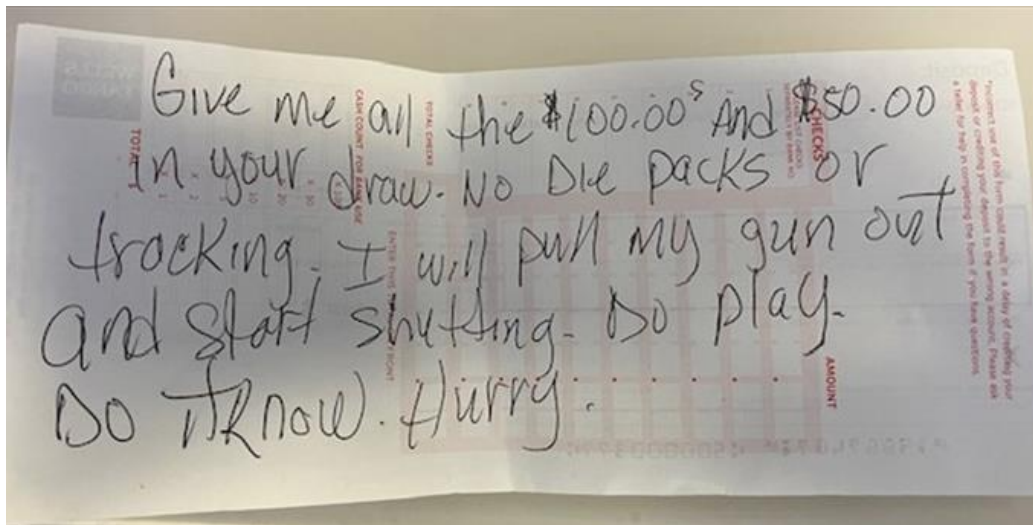 Give me all the $100.00s And $50.00
in your draw. No Die packs or
tracking. I will pull my gun out
and start shutting. Do play.
Do itknow. Hurry.
WELLS
FARGO
TOTAL
CASH COUNT FOR BANK USE
TOTAL CHECKS
CHECKS
AMOUNT
*Incorrect use of this form could result in a delay of crediting your
deposit or crediting your deposit to the wrong account. Please ask
a teller for help in completing the form if you have questions.